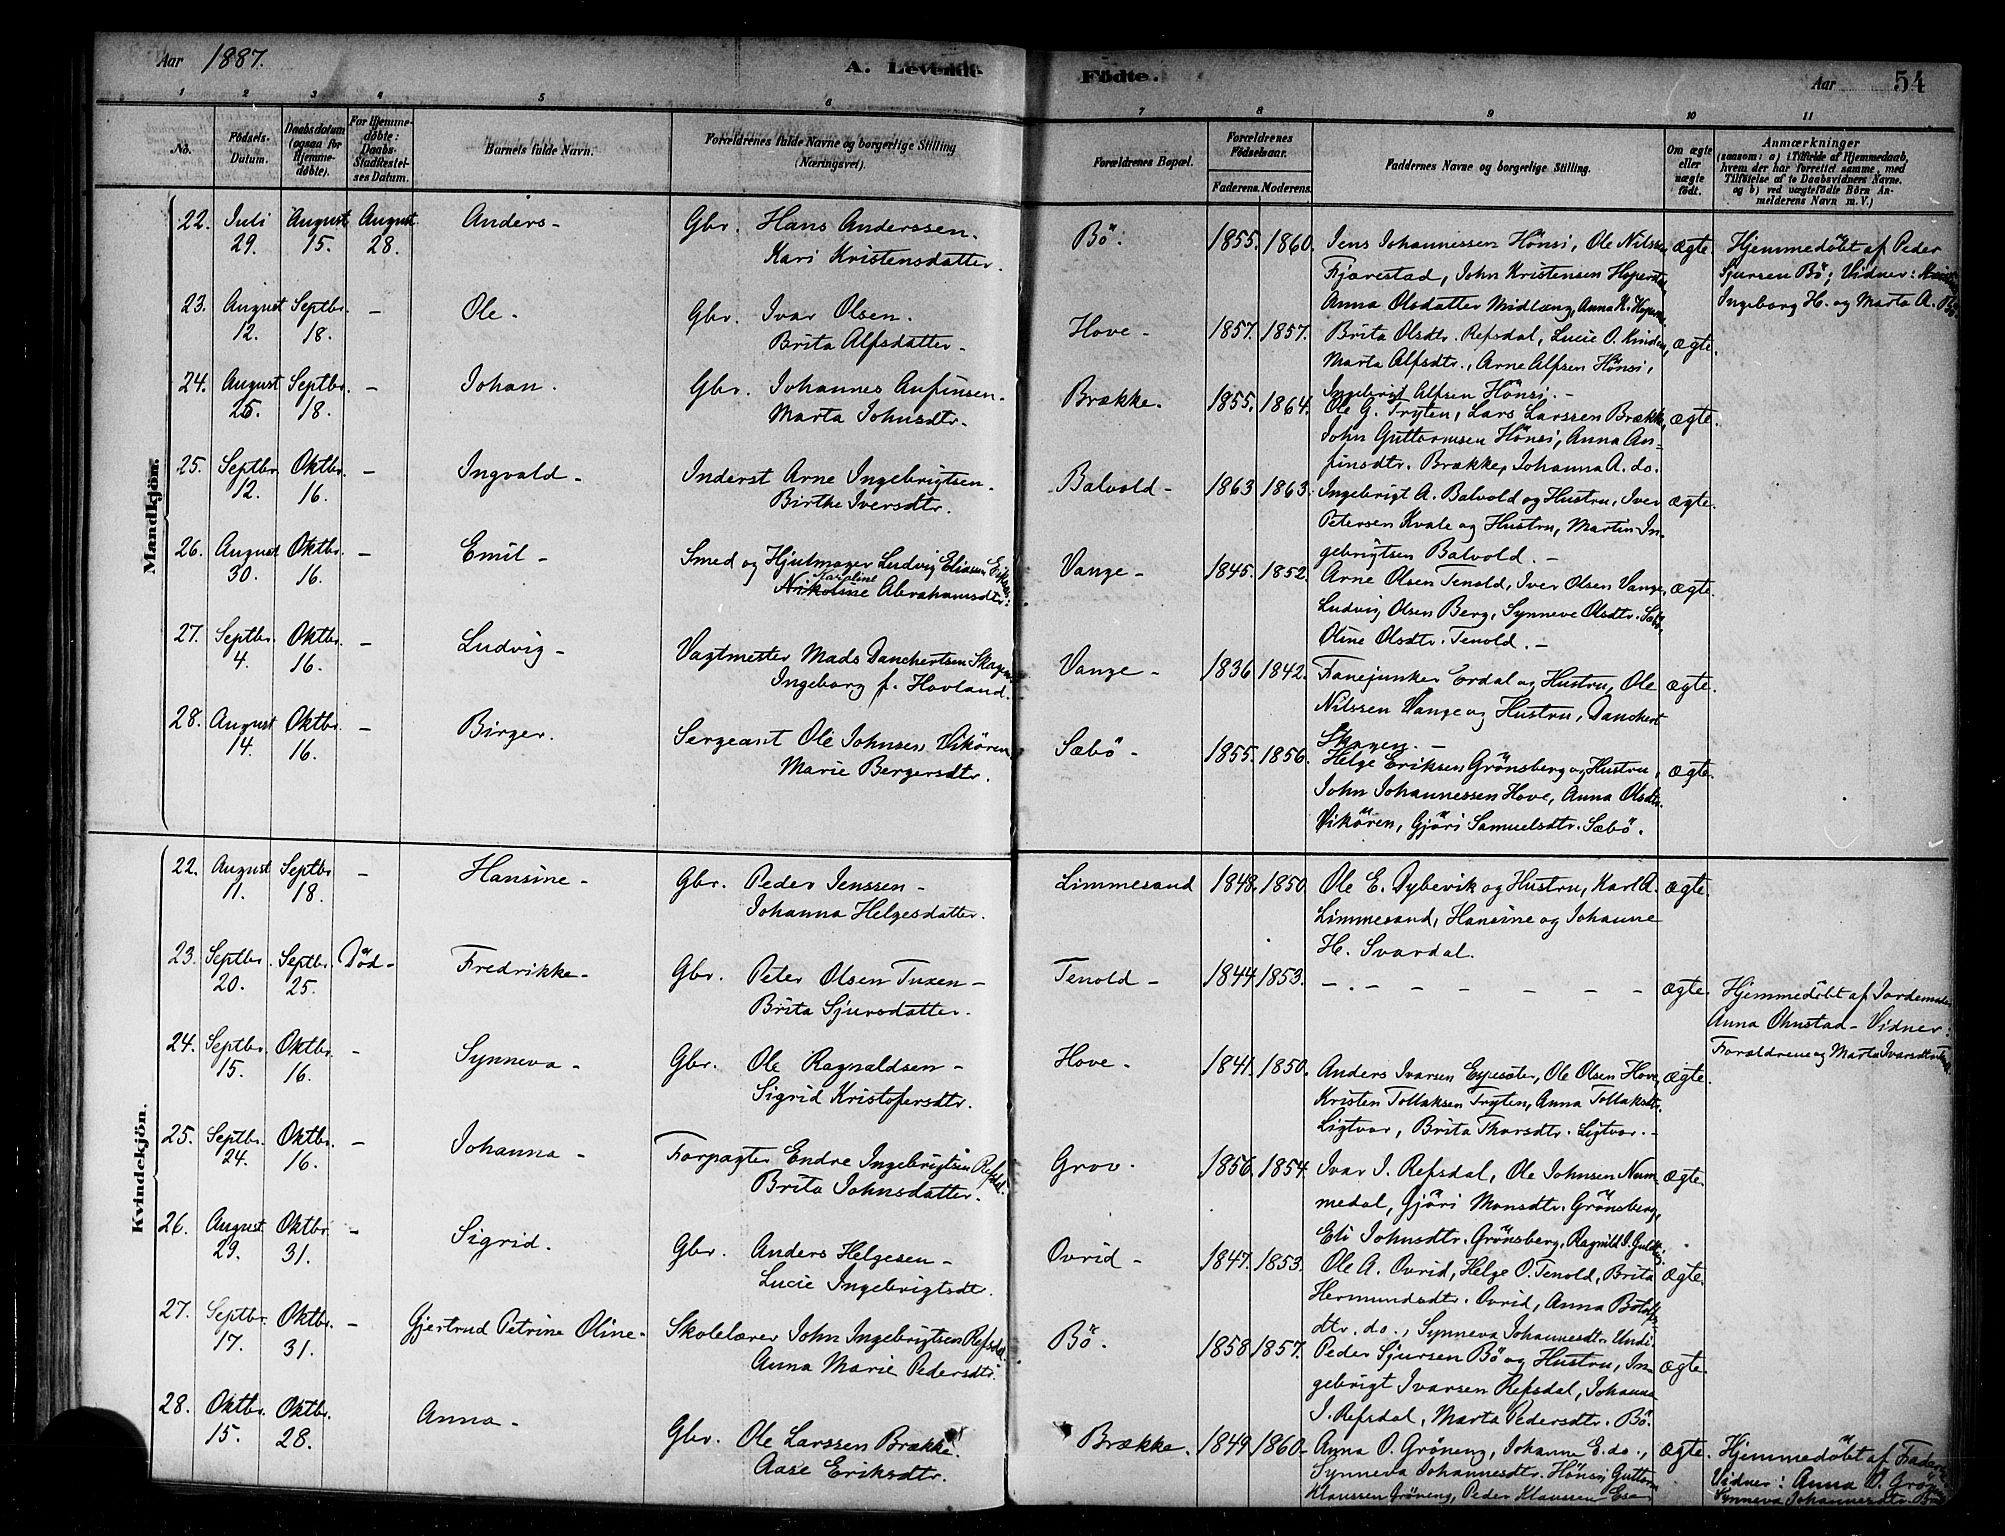 Aar 1887. A. Levende Födte. Aar 54
1 2 3 4 5 6 7 8 9 10 11
No. Födsels-Datum. Daabsdatum (ogsaa for Hjemmedöbte). For Hjemmedöbte: Daabs-Stadfæstelses Datum. Barnets fulde Navn. Forældrenes fulde Navne og borgerlige Stilling (Næringsvei). Forældrenes Bopæl. Forældrenes Födselsaar. Faderens. Moderens. Faddernes Navne og borgerlige Stilling. Om ægte eller uægte födt. Anmærkninger (saasom: a) i Tilfælde af Hjemmedaab, hvem der har forrettet samme, med Tilföielse af to Daabsvidners Navne. og b) ved uægtefödte Börn Anmelderens Navn m. V.)
Mandkjön.
22. Juli 29. August 15. August 28. Anders - Gbr. Hans Anderssen. Kari Kristensdatter. Bö. 1855. 1860. Jens Johannessen Hönsi, Ole Nilssen
Fjærestad, John Kristensen Hopersta
Anna Olsdatter Midlang, Anna K. Hopersta ægte. Hjemmedöbt af Peder
Sjursen Bö; Vidner:
Ingeborg H. og Marta A. Bö.
23. August 12. Septbr. 18. - Ole - Gbr. Ivar Olsen. Brita Alfsdatter. Hove - 1857. 1857. Brita Olsdtr. Refsdal, Lucie O. Kinden,
Marta Alfsdtr., Arne Alfsen Hönsi,
Ingebrigt Alfsen Hönsi. - ægte.
24. August 25. Septbr. 18. - Johan. Gbr. Johannes Anfinsen. Marta Johnsdtr. Brække. 1855. 1864. Ole G. Tryten, Lars Larssen Brække,
John Guttormsen Hönsi, Anna An-
finsdtr. Brække, Johanna A. do. ægte.
25. Septbr. 12. Oktbr. 16. - Ingvald - Inderst Arne Ingebrigtsen. Birthe Iversdtr. Balvold - 1863 1863. Ingebrigt A. Balvold og Hustru, Iver
Petersen Kvale og Hustru, Martin In-
gebrigtsen Balvold. - ægte.
26. August 30. Oktbr. 16. - Emil - Smed og Hjulmager Ludvig Eliasen
Karoline
Nikoline Abrahamsdtr. Vange - 1845. 1852. Arne Olsen Tenold, Iver Olsen Vange,
Ludvig Olsen Berg, Synneve Olsdtr. Sæbö,
Oline Olsdtr. Tenold. - ægte.
27. Septbr. 4. Oktbr. 16. - Ludvig - Vagtmester Mads Danchertsen Skagen. Ingeborg f. Hovland. Vange - 1836 1842. Fanejunker Erdal og Hustru, Ole
Nilssen Vange og Hustru, Danchert
Skagen. - ægte.
28. August 14. Oktbr. 16. - Birger. Sergeant Ole Johnsen Vikören. Marie Bergersdtr. Sæbö - 1855. 1856. Helge Eriksen Grönsberg og Hustru,
John Johannessen Hove, Anna Olsdtr.
Vikören, Gjöri Samuelsdtr. Sæbö. ægte.
Kvindekjön.
22. August 11. Septbr. 18. - Hansine - Gbr. Peder Jenssen - Johanna Helgesdatter. Limmesand 1848. 1850. Ole E. Dybevik og Hustru, Karl A.
Limmesand, Hansine og Johanne
H. Svardal. ægte.
23. Septbr. 20. Septbr. 25. Död - Fredrikke - Gbr. Peter Olsen Tuxen - Brita Sjursdatter. Tenold - 1844. 1853. - . - - - - - - ægte. Hjemmedöbt af Jordemoder
Anna Ohnstad - Vidner:
Forældrene og Marta Ivarsdtr.
24. Septbr. 15. Oktbr. 16. - Synneva - Gbr. Ole Ragnaldsen - Sigrid Kristofersdtr. Hove - 1841. 1850. Anders Ivarsen Espesæter, Ole Olsen Hove,
Kristen Tollaksen Tryten, Anna Tollaksdtr.
Ligtvor, Brita Thorsdtr. Ligtvor. - ægte.
25. Septbr. 24. Oktbr. 16. - Johanna - Forpagter Endre Ingebrigtsen Refsdal. Brita Johnsdatter. Grov. 1856. 1854. Ivar I. Refsdal, Ole Johnsen Num-
medal, Gjöri Monsdtr. Grönsberg,
Eli Johnsdtr. Grönsberg, Ragnild I. ægte.
26. August 29. Oktbr. 31. - Sigrid. Gbr. Anders Helgesen - Lucie Ingebrigtsdt. Ovrid - 1847. 1853. Ole A. Ovrid, Helge O. Tenold, Brita
Hermundsdtr. Ovrid, Anna Botolfs-
dtr. do., Synneva Johannesdtr. Undi. ægte.
27. Septbr. 17. Oktbr. 31. - Gjertrud Petrine Oline - Skolelærer John Ingebrigtsen Refsdal Anna Marie Pedersdtr. Bö. 1858 1857. Peder Sjursen Bö og Hustru, In-
gebrigt Ivarsen Refsdal, Johanna
I. Refsdal, Marta Pedersdtr. Bö. ægte.
28. Oktbr. 15. Oktbr. 28. Anna - Gbr. Ole Larssen Brække. Aase Eriksdtr. Brække. 1849. 1860. Anna O. Gröneng, Johanne E. do.,
Synneva Johannesdtr. Hönsi, Guttorm
Klaussen Gröneng, Peder Klaussen Ese ægte. Hjemmedöbt af Faderen
Vidner: Anna O. Grön
Synneva Johannesdtr.